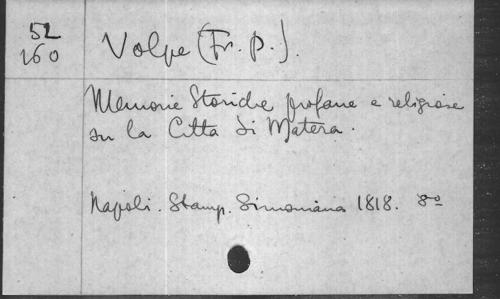 52
160
Volpe (Fr. P.).
Memorie Storiche profane e religiose
su la Citta di Matera.
Napoli. Stamp. Simoniana 1818. 8º